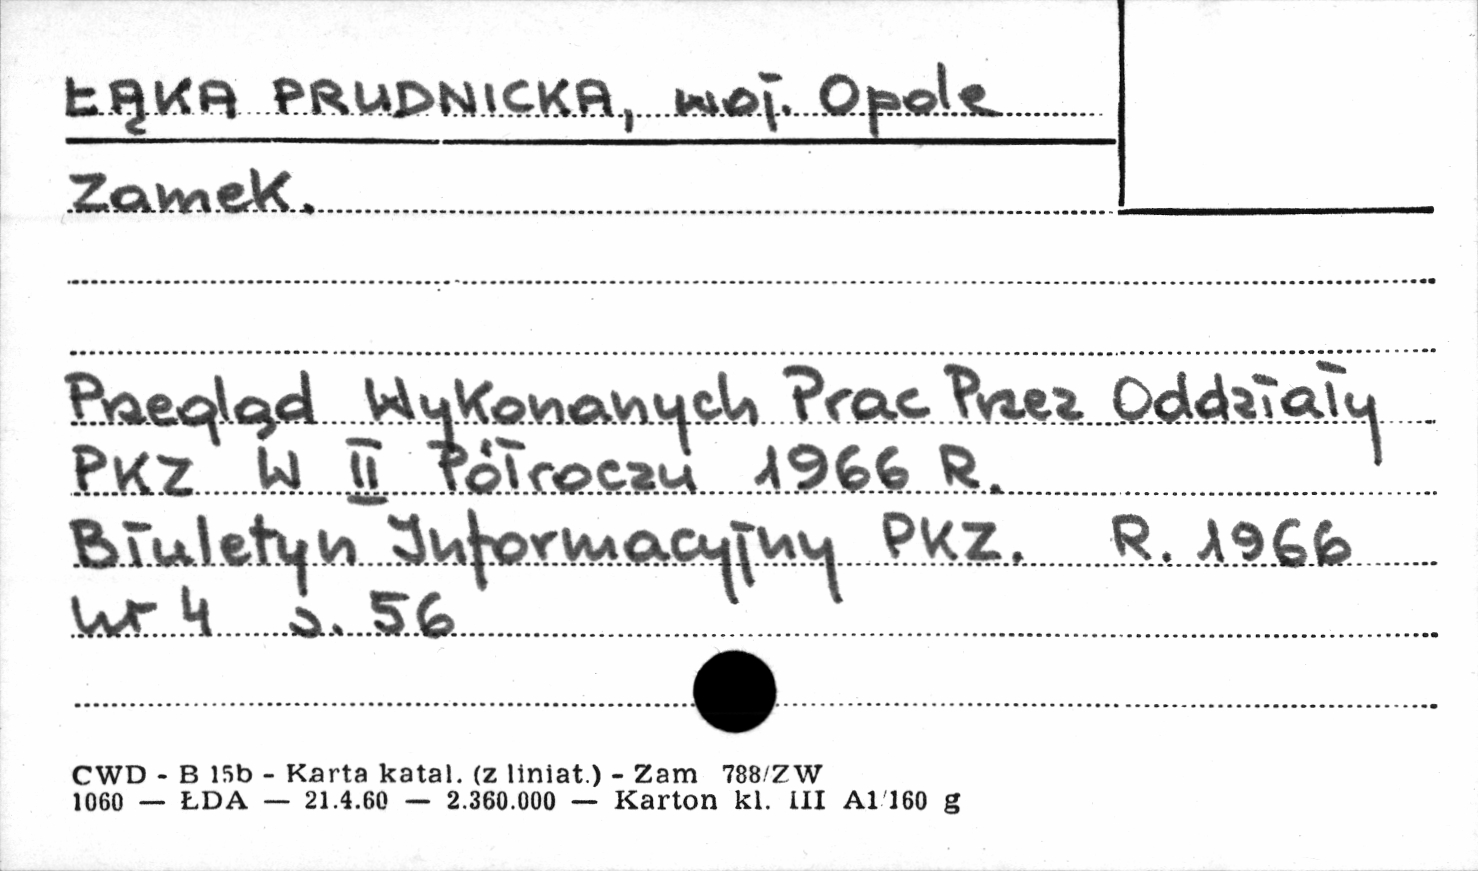 ŁĄKA PRUDNICKA, woj. Opole
Zamek.
Przegląd Wykonanych Prac Przez Oddziały
PKZ W II Półroczu 1966 R.
Biuletyn Informacyjny PKZ. R. 1966
nr 4 s. 56
CWD - B 15b - Karta katal. (z liniat.) - Zam 788/ZW
1060 — ŁDA — 21.4.60 — 2.360.000 — Karton kl. III A1/160 g